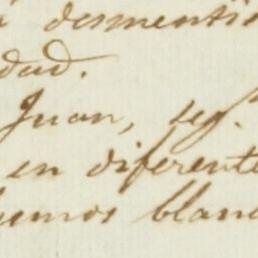 desmenti
dad.
Juan, seg.
en diferente
humos blanc